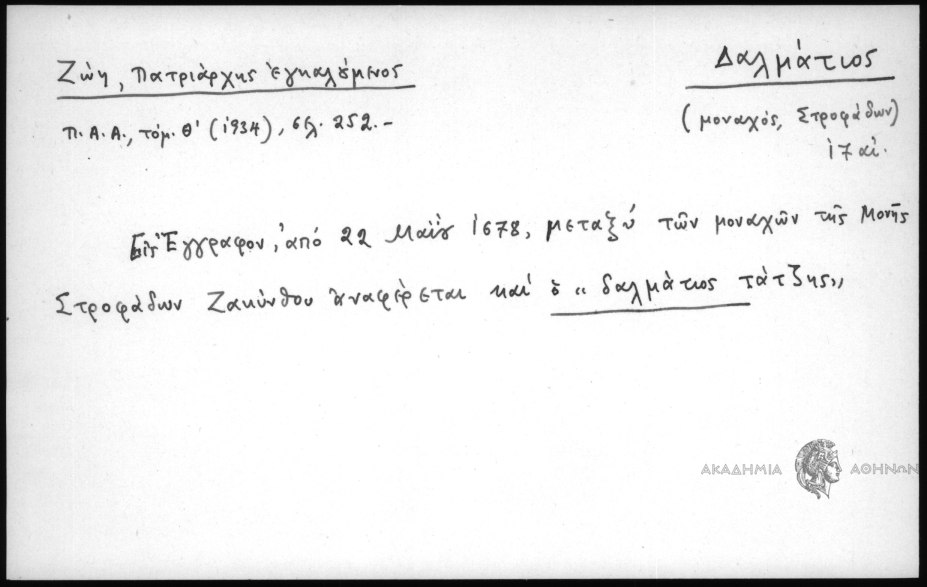 Δαλμάτιος
(μοναχός, Στροφάδων)
17 αἰ.
Ζώη, Πατριάρχης ἐγκαλούμενος
Π.Α.Α., τόμ. Θ' (1934), σελ. 252.-
Εἰς Ἔγγραφον, ἀπό 22 Μαΐου 1678, μεταξύ τῶν μοναχῶν τῆς Μονῆς
Στροφάδων Ζακύνθου ἀναφέρεται καί ὁ «δαλμάτιος τάτζης»
ΑΚΑΔΗΜΙΑ ΑΘΗΝΩΝ